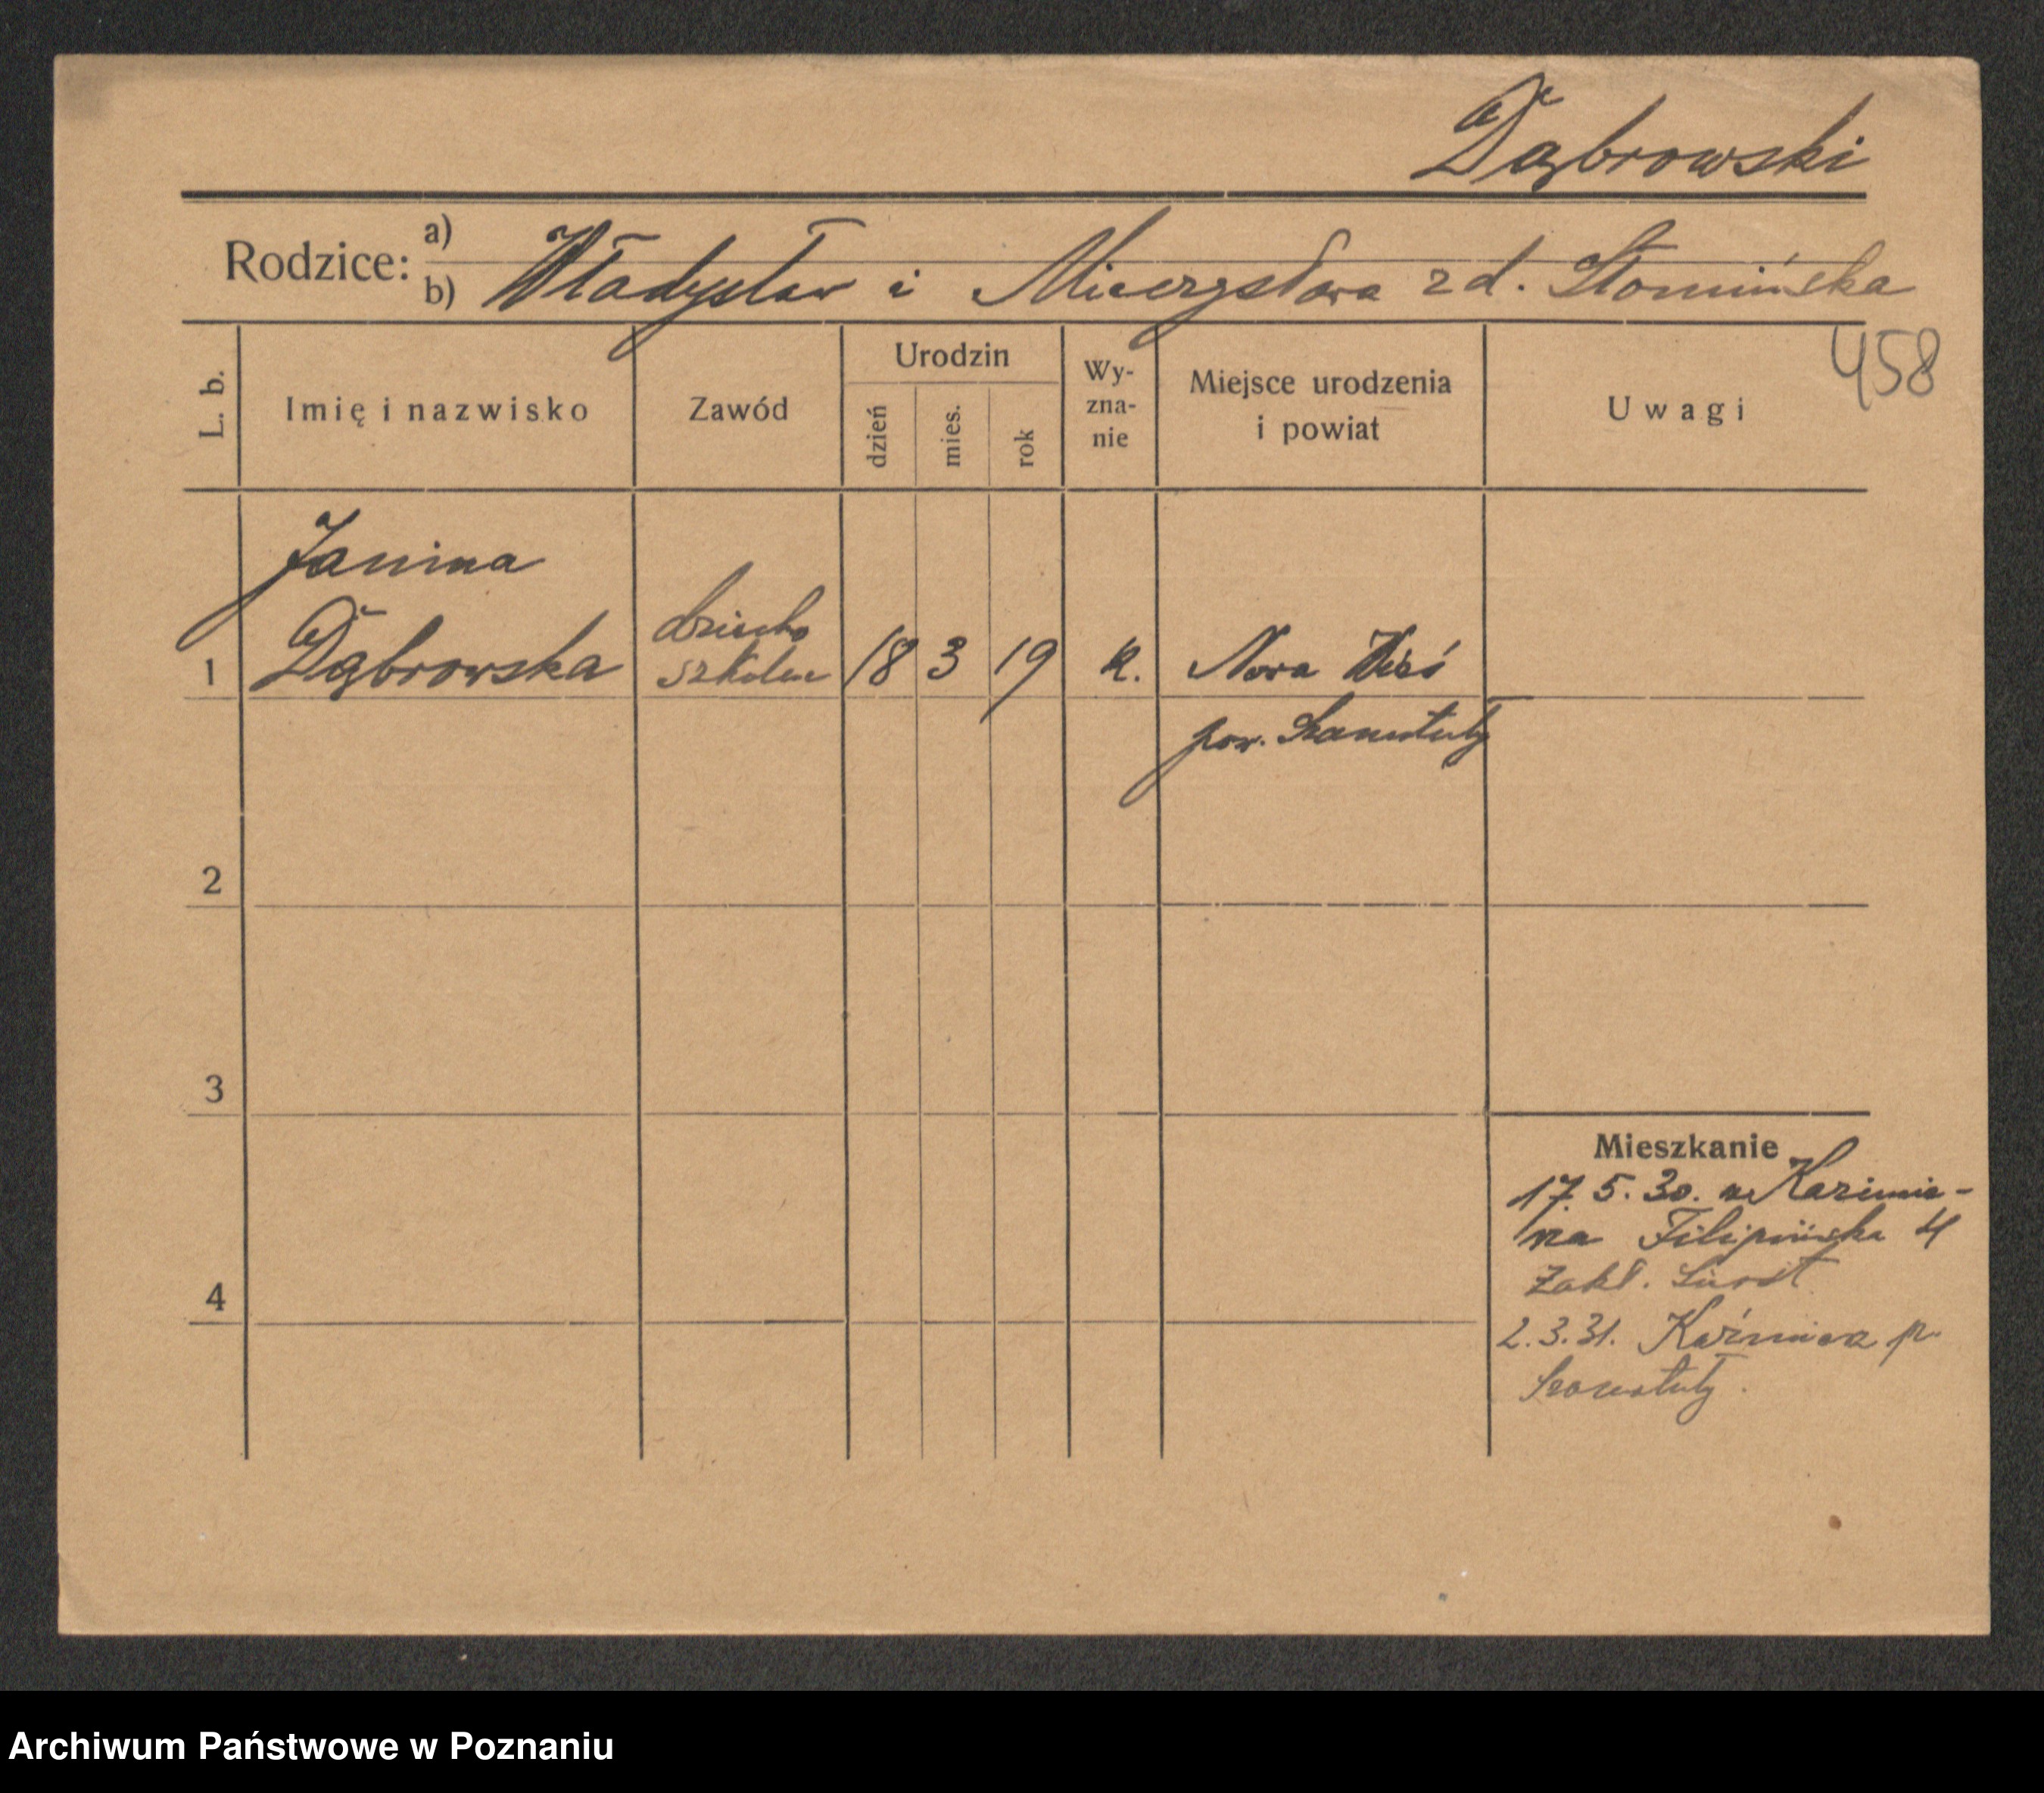 Dąbrowski
Rodzice: a)
b) Władysław i Mieczysława z d. Słomińska
458
L. b.
Imię i nazwisko
Zawód
Urodzin
dzień
mies.
rok
Wy-
zna-
nie
Miejsce urodzenia
i powiat
Uwagi
Janina
1 Dąbrowska
dziecko
szkolne
18 3 19 k. Nowa Wieś
pow. Szamotuły
2
3
4
Mieszkanie
17. 5. 30. z Kazimie-
rza Filipińska 4
Zakł. Sierot
2. 3. 31. Kaźmierz p.
Szamotuły.
Archiwum Państwowe w Poznaniu